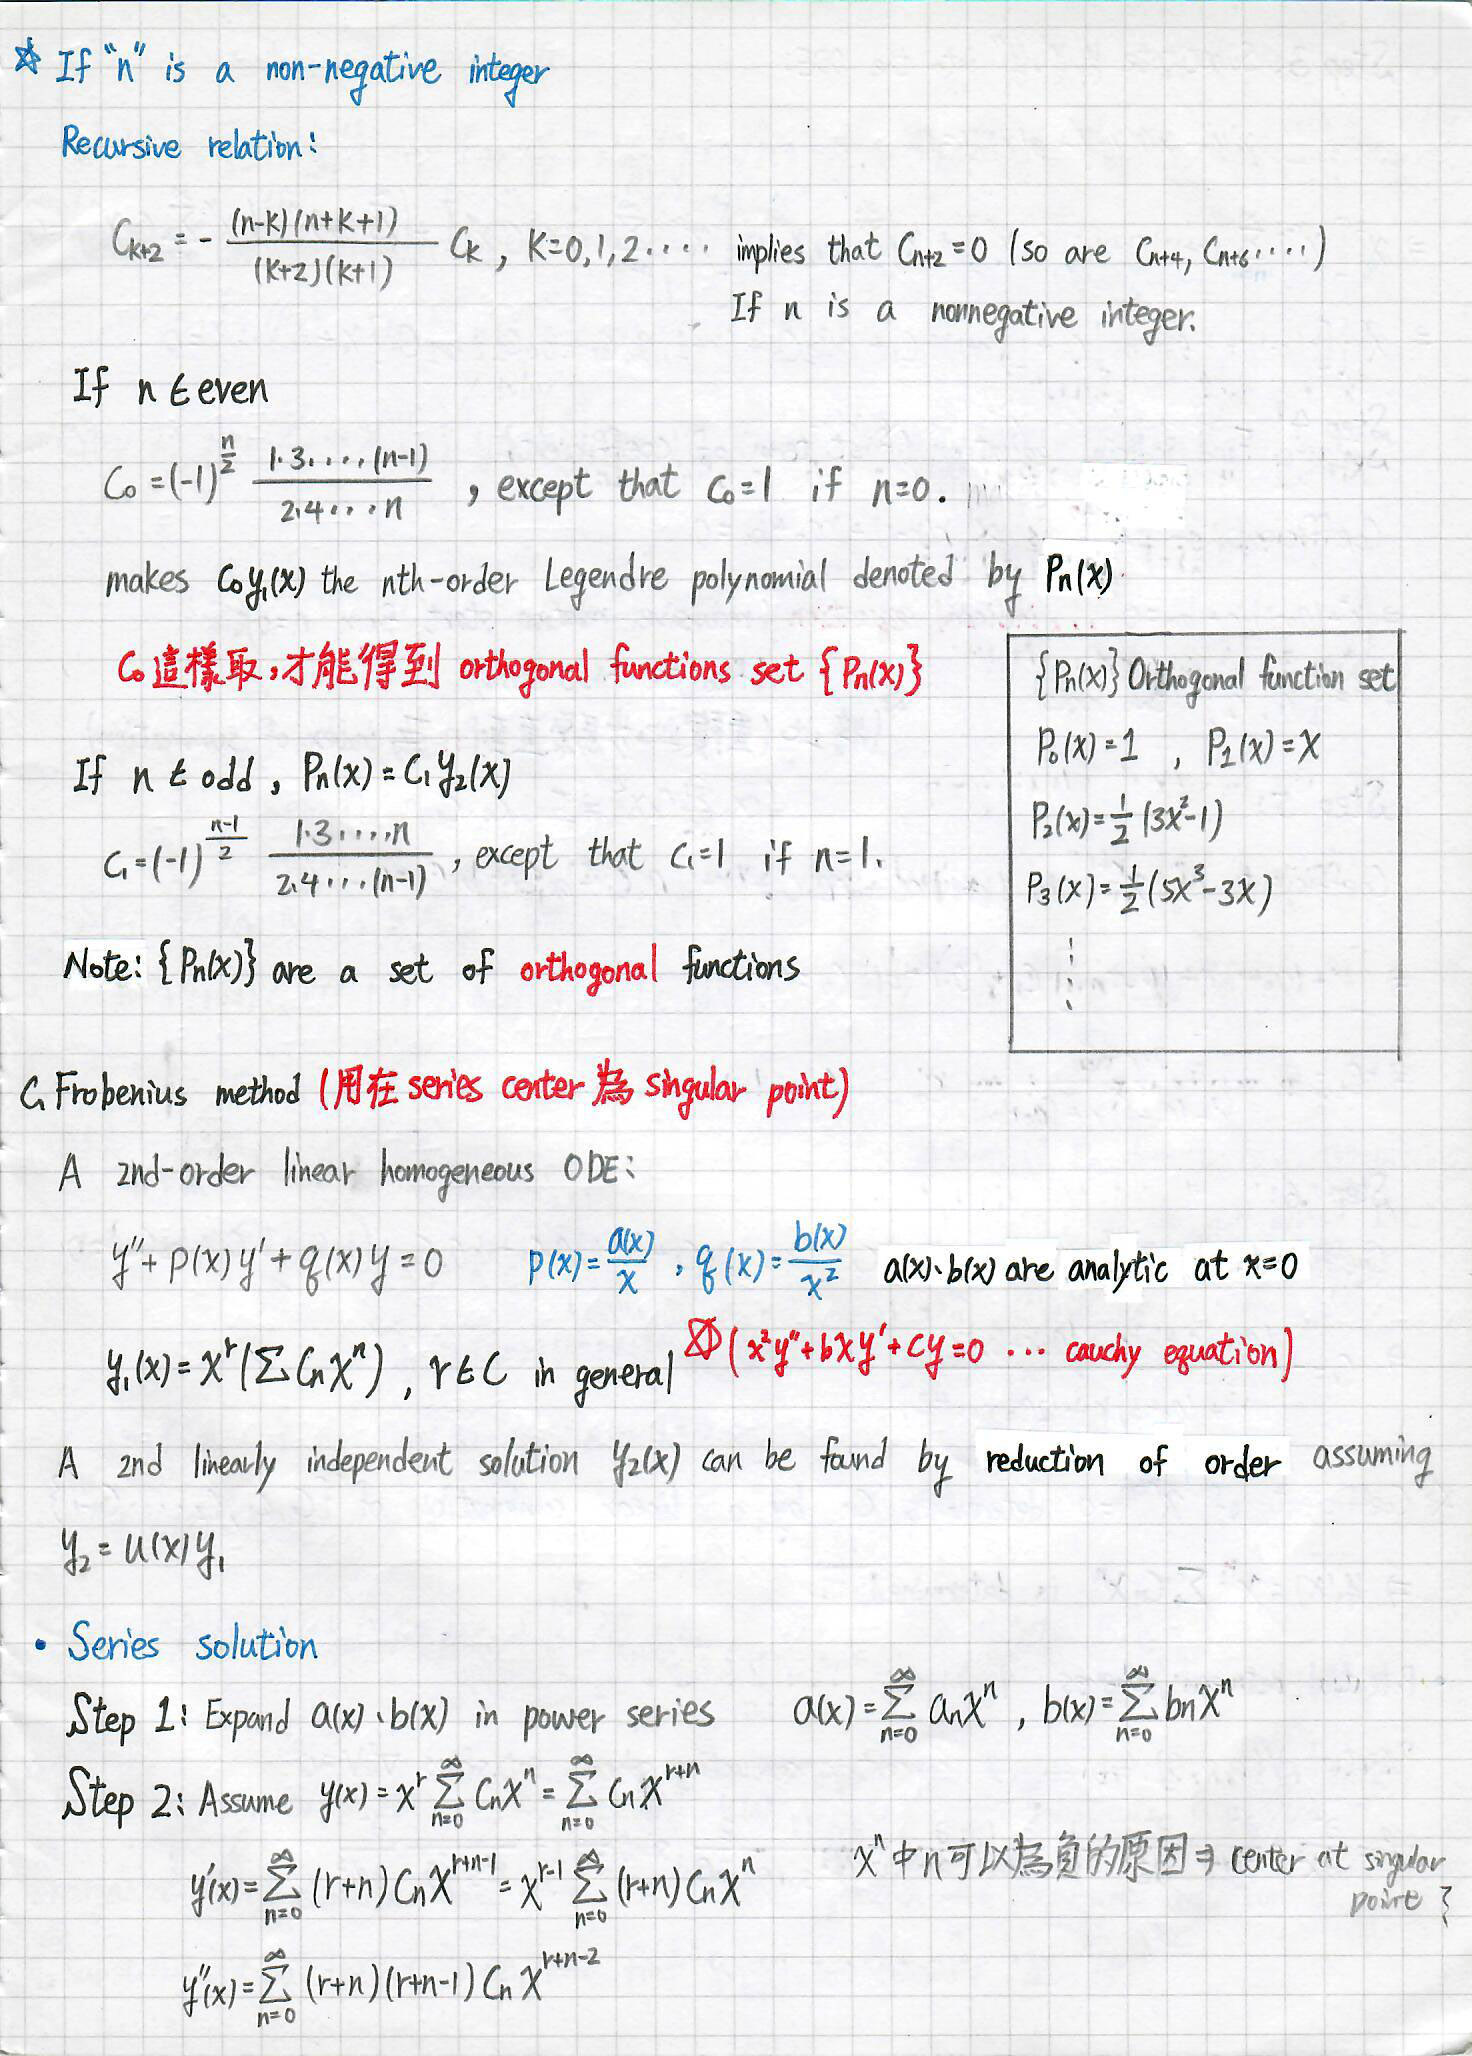 ☆ If "n" is a non-negative integer
Recursive relation:
C_{k+2} = - \frac{(n-k)(n+k+1)}{(k+2)(k+1)} C_k , k=0,1,2.... implies that C_{n+2}=0 (so are C_{n+4}, C_{n+6}....)
If n is a nonnegative integer.
If n ∈ even
C_0 = (-1)^{\frac{n}{2}} \frac{1.3.....(n-1)}{2.4...n} , except that C_0=1 if n=0.
makes C_0y_1(x) the nth-order Legendre polynomial denoted by P_n(x)
C_0 這樣取,才能得到 orthogonal functions set {P_n(x)}
If n ∈ odd , P_n(x) = C_1 y_2(x)
C_1 = (-1)^{\frac{n-1}{2}} \frac{1.3.....n}{2.4...(n-1)} , except that C_1=1 if n=1.
Note: {P_n(x)} are a set of orthogonal functions
{P_n(x)} Orthogonal function set
P_0(x)=1 , P_1(x)=x
P_2(x)=\frac{1}{2}(3x^2-1)
P_3(x)=\frac{1}{2}(5x^3-3x)
⋮
C, Frobenius method (用在 series center 為 singular point)
A 2nd-order linear homogeneous ODE:
y''+p(x)y'+q(x)y=0 p(x)=\frac{a(x)}{x} , q(x)=\frac{b(x)}{x^2} a(x)、b(x) are analytic at x=0
y_1(x)=x^r(∑C_nx^n) , r∈C in general ☆(x^2y''+bxy'+cy=0 ... cauchy equation)
A 2nd linearly independent solution y_2(x) can be found by reduction of order assuming
y_2=u(x)y_1
• Series solution
Step 1: Expand a(x)、b(x) in power series a(x)=\sum_{n=0}^{∞} a_nx^n , b(x)=\sum_{n=0}^{∞} b_nx^n
Step 2: Assume y(x)=x^r\sum_{n=0}^{∞} C_nx^n=\sum_{n=0}^{∞} C_nx^{r+n}
y'(x)=\sum_{n=0}^{∞} (r+n)C_nx^{r+n-1}=x^{r-1}\sum_{n=0}^{∞} (r+n)C_nx^n
x^n 中 n 可以為負的原因 ⇒ center at singular
point }
y''(x)=\sum_{n=0}^{∞} (r+n)(r+n-1)C_nx^{r+n-2}